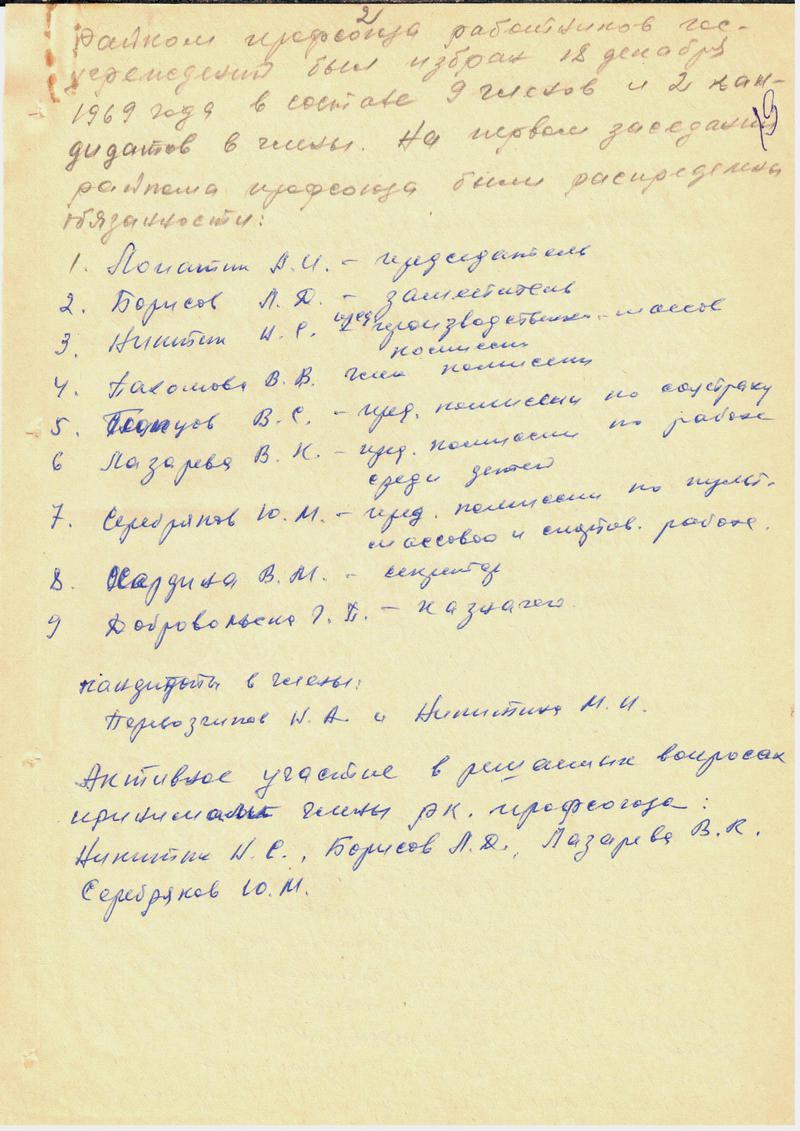 2
Райком профсоюза работников гос-
учреждений был избран 18 декабря
1969 года в составе 9 членов и 2 кан-
дидатов в члены. На первом заседании
райкома профсоюза были распределены
обязанности:
1. Лопатин А.И. – председатель
2. Борисов Л.Д. – заместитель
3. Никитин Н.С. – пред. производственно-массов
комиссии
4. Пахомова В.В. член комиссии
5. В.С. – пред. комиссии по соцстраху
6 Лазарева В.К. – пред. комиссии по работе
среди детей
7. Серебряков Ю.М. – пред. комиссии по культ-
массовой и спортив. работе.
8. Хардина В.М. – секретарь
9 Добровольска Г.П. – казначей.
Кандидаты в члены:
Перевозчиков Н.А. и Никитина М.И.
Активное участие в решаемых вопросах
принимали члены рк. профсоюза:
Никитин Н.С., Борисов Л.Д., Лазарева В.К.
Серебряков Ю.М.